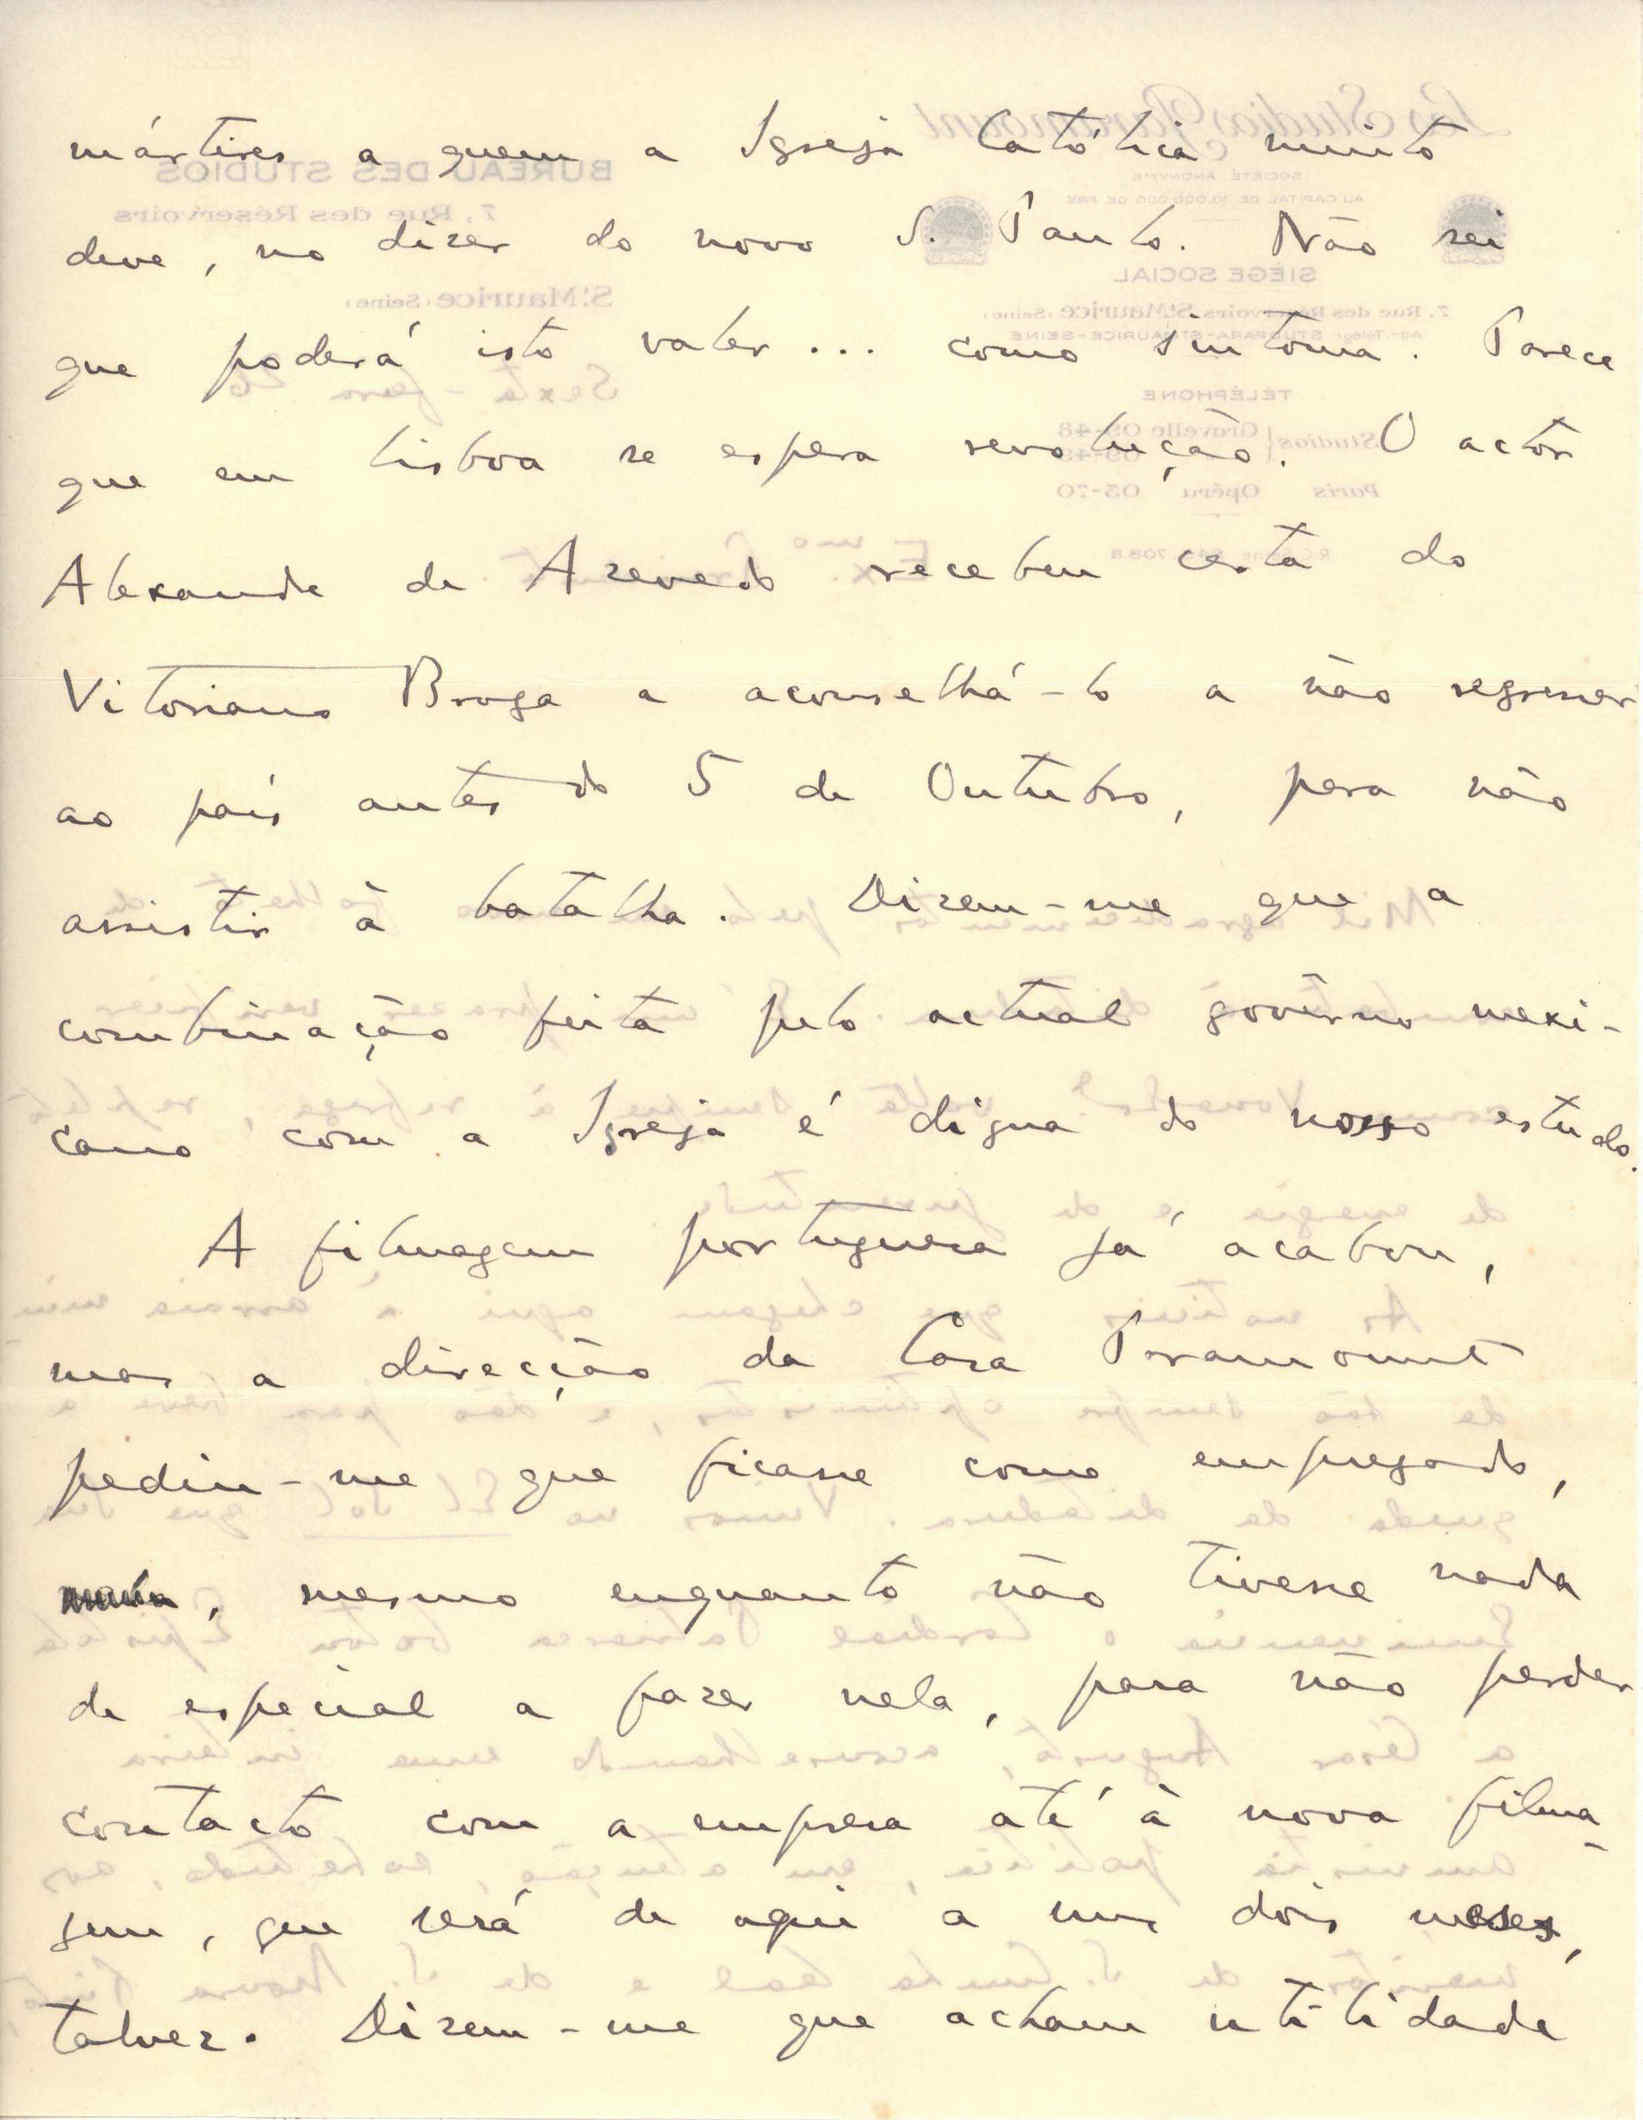 mártires a quem a Igreja Católica muito
deve, no dizer do novo S. Paulo. Não sei
que poderá isto valer... como síntoma. Parece
que em Lisboa se espera revolução. O actor
Alexandre de Azevedo recebeu carta do
Vitoriano Braga a aconselhá-lo a não regressar
ao país antes do 5 de Outubro, para não
assistir à batalha. Dizem-me que a
combinação feita pelo actual govêrno mexi-
cano com a Igreja é digna do nosso estudo.
A filmagem portuguesa já acabou,
mas a direcção da Casa Paramount
pediu-me que ficasse como empregado,
, mesmo enquanto não tivesse nada
de especial a fazer nela, para não perder
contacto com a empresa até à nova filma-
gem, que será de aqui a uns dois meses,
talvez. Dizem-me que acham utilidade